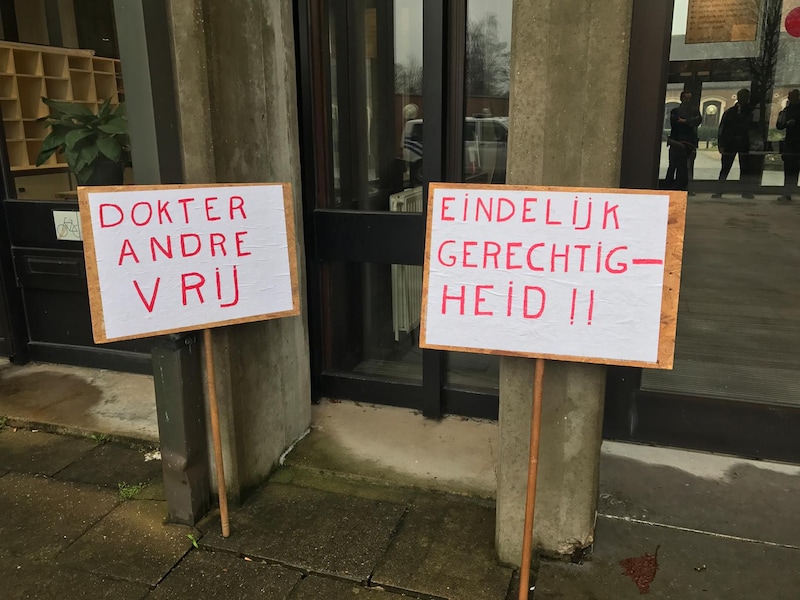 DOKTER
ANDRE
VRIJ
EINDELIJK
GERECHTIG-
HEID !!